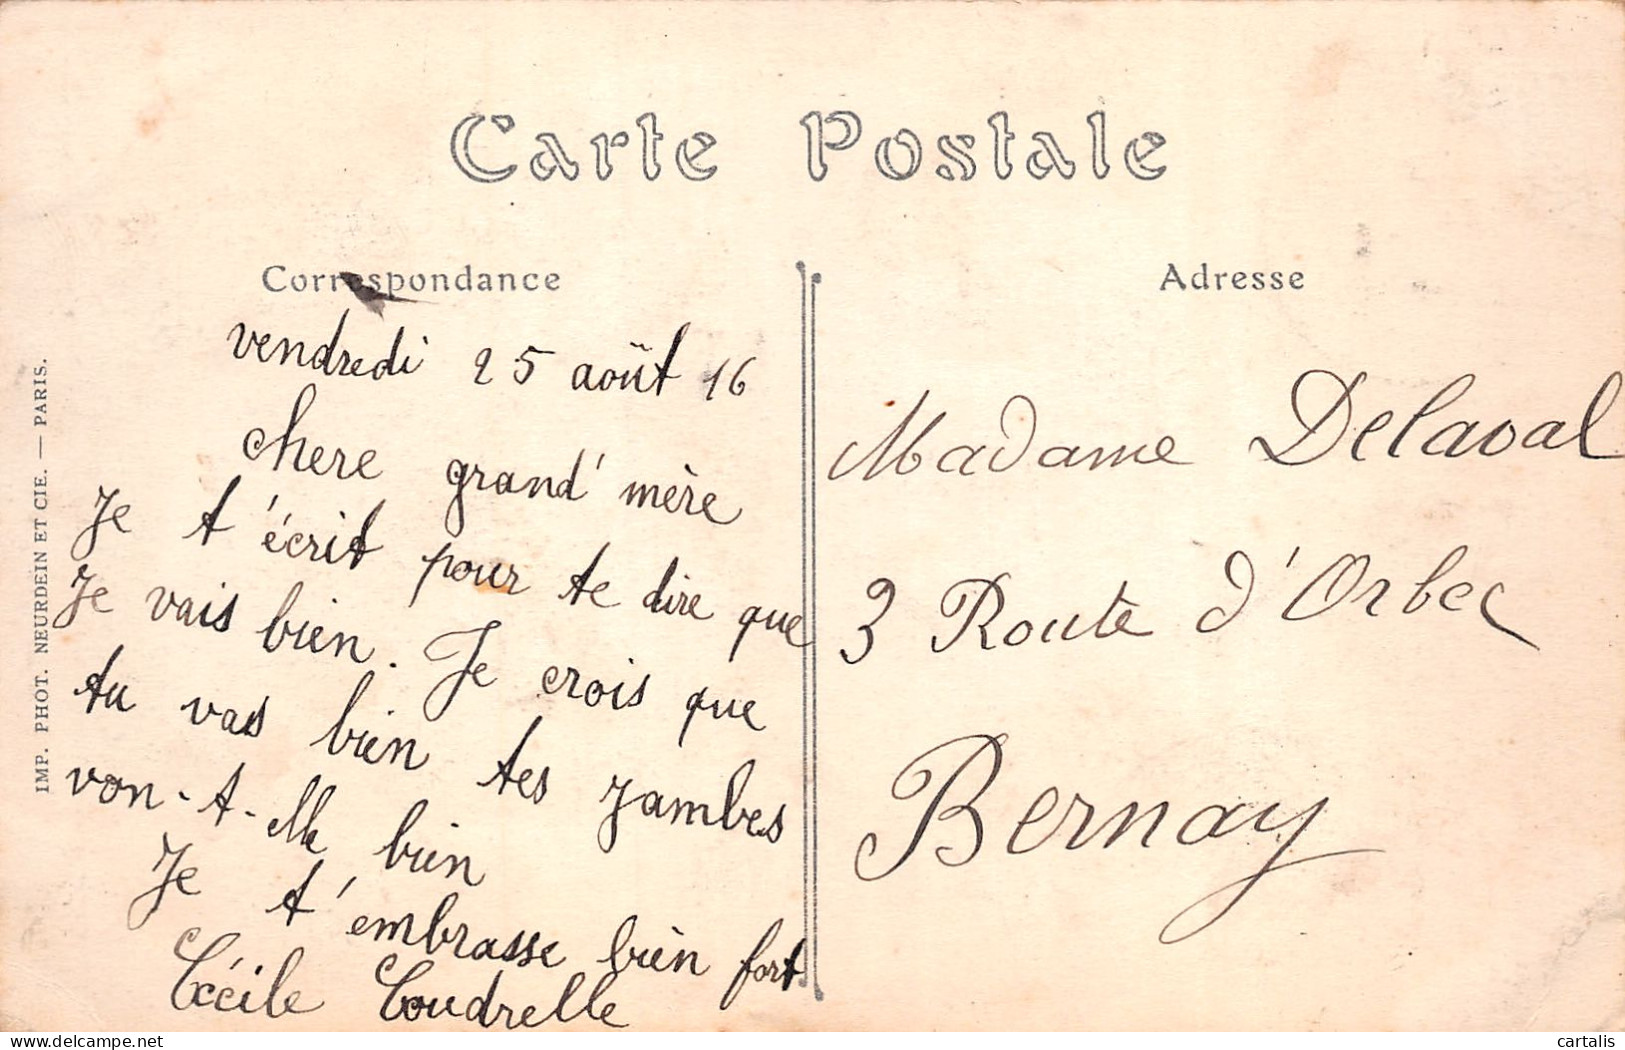 Carte Postale
Correspondance
vendredi 25 août 16
chere grand' mère
Je t'écrit pour te dire que
Je vais bien. Je crois que
tu vas bien tes jambes
von-t-elle bien
Je t'embrasse bien fort
Cécile Coudrelle
Adresse
Madame Delaval
3 Route d'Orbec
Bernay
IMP. PHOT. NEURDEIN ET CIE. — PARIS.
my.delcampe.net
cartalis